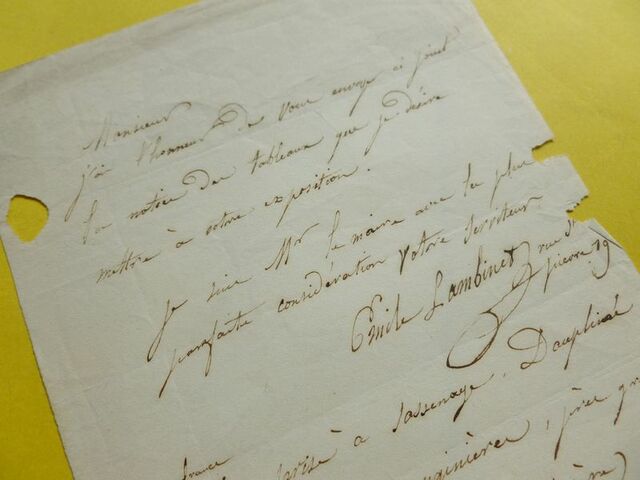 Monsieur
j'ai l'honneur de vous envoyer ci joint
la notice des tableaux que je désire
mettre à votre exposition.
Je suis Mr le maire avec la plus
parfaite considération votre serviteur
Emile Lambinet rue d'
19
à Sassenage, Dauphiné
france